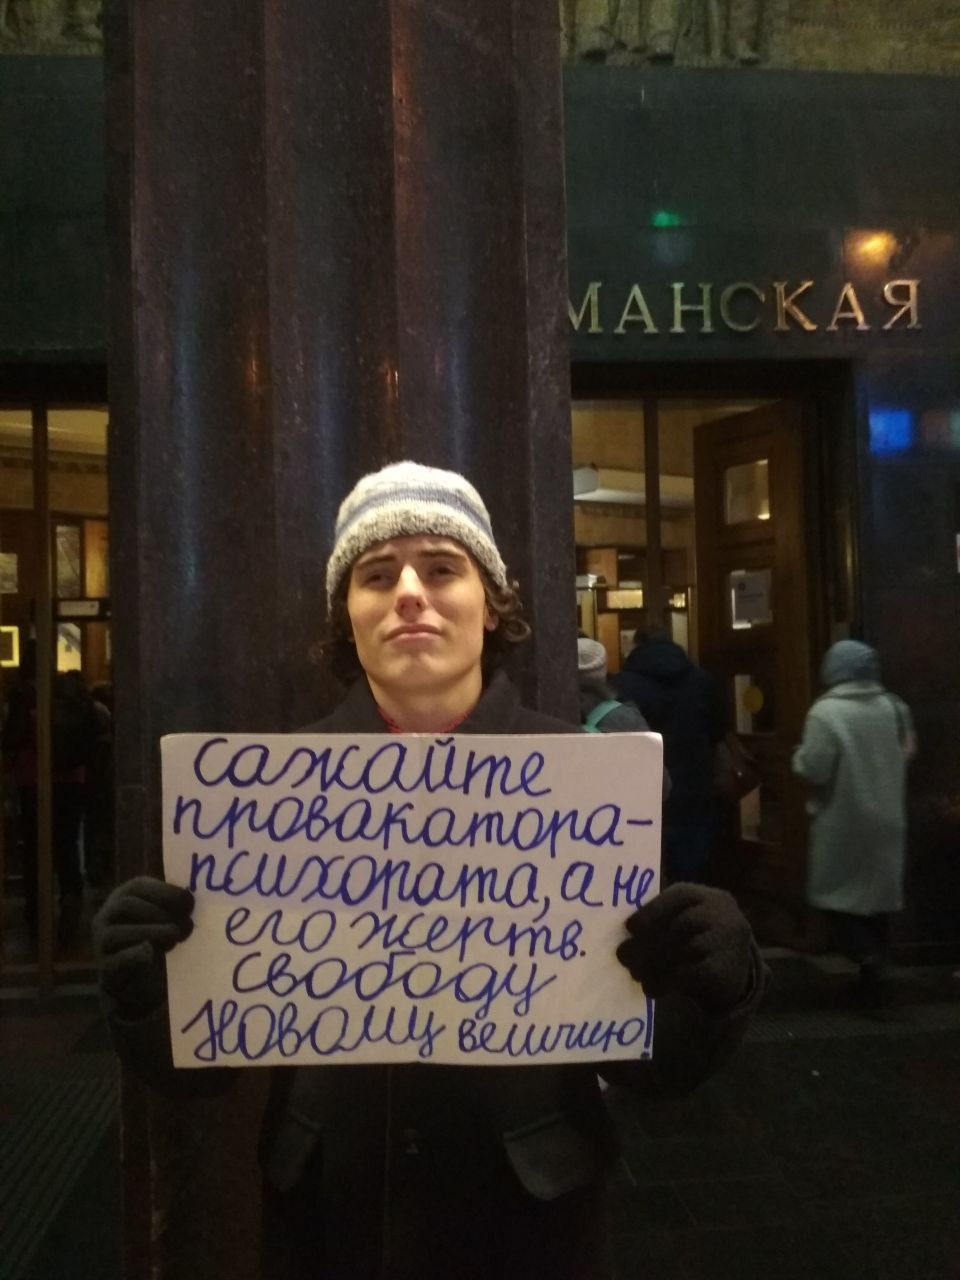 МАНСКАЯ
сажайте
провакатора-
психопата, а не
его жертв.
свободу
Новому величию!